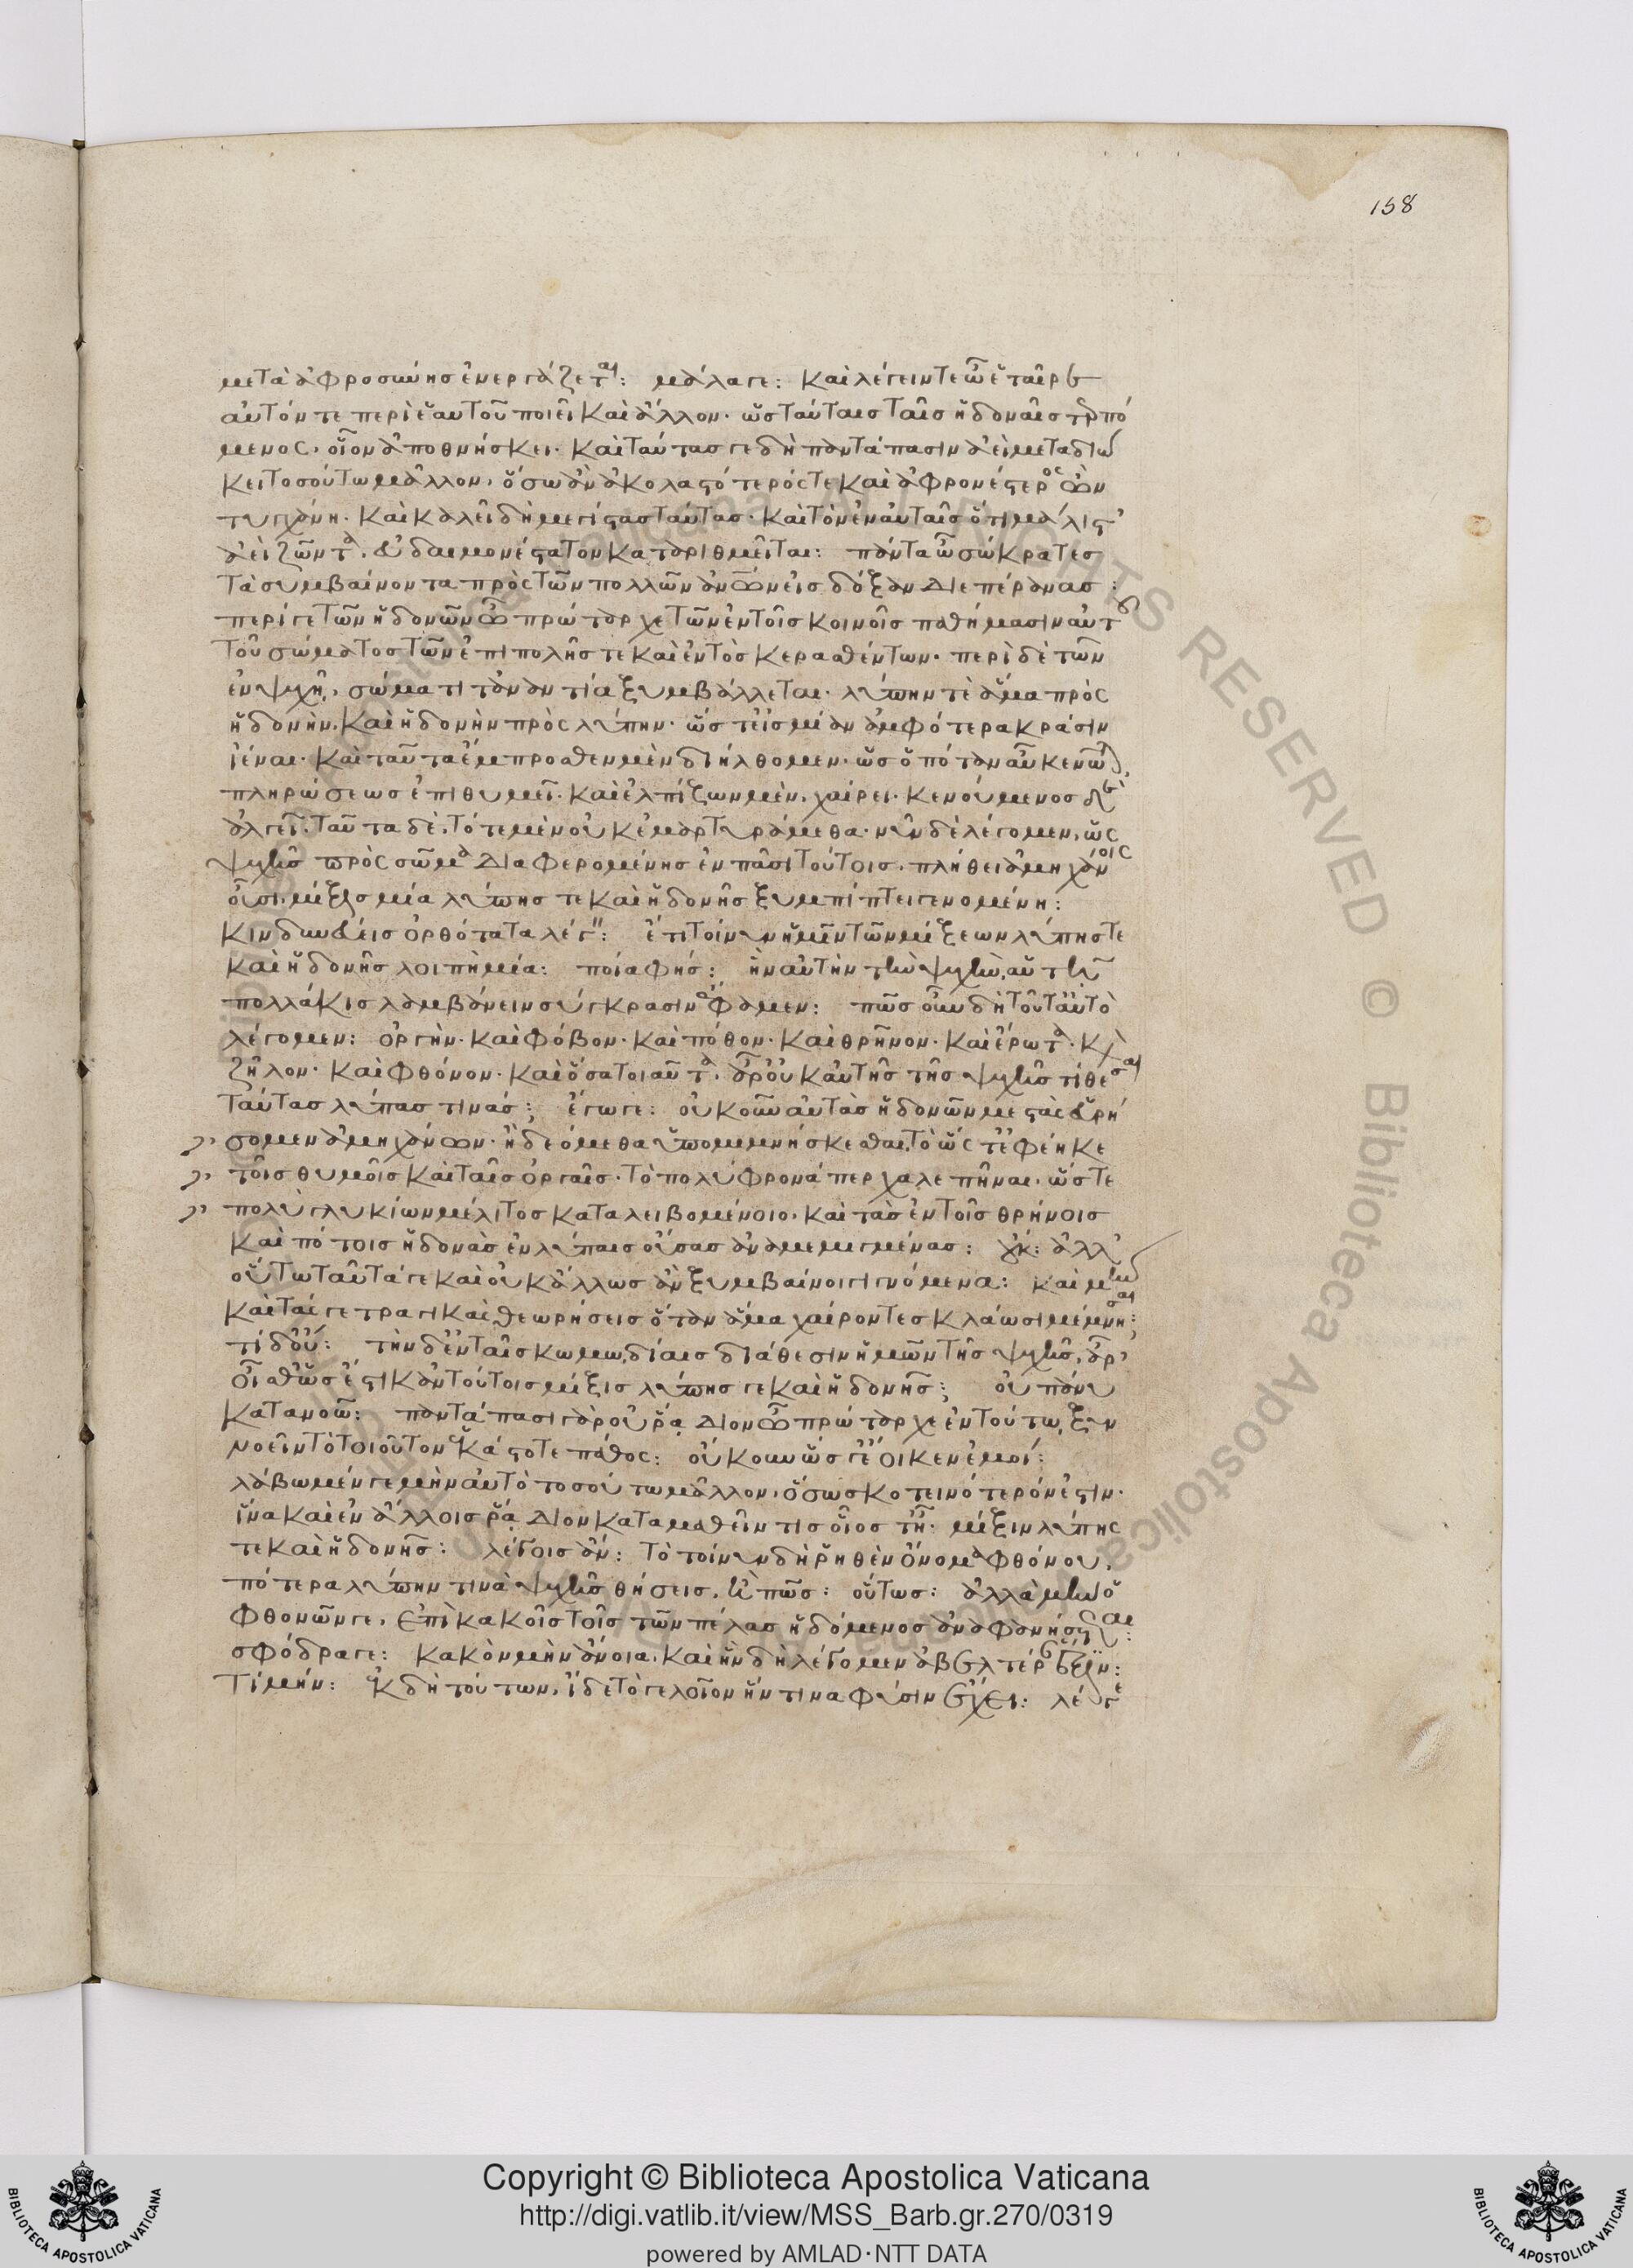 158
μετὰ ἀφροσύνης ἐνεργάζεται: μάλα γε: καὶ λέγειν τε ὦ ἑταῖρε
αὐτόν τε περὶ ἑαυτοῦ ποιεῖ καὶ ἄλλον· ὡς ταύταις ταῖς ἡδοναῖς τερπό
μενος, οἷον ἀποθνήσκει· καὶ ταύτας γε δὴ παντάπασιν ἀεὶ μεταδιώ
κει τοσούτω μᾶλλον, ὅσω ἂν ἀκολαστότερός τε καὶ ἀφρονέστερος ὢν
τυγχάνη· καὶ καλεῖ δὴ μεγίστας ταύτας· καὶ τὸν ἐν αὐταῖς ὅτι μάλιστ'
ἀεὶ ζῶντα, εὐδαιμονέστατον καταριθμεῖται: πάντα ὦ σώκρατες
τὰ συμβαίνοντα πρὸς τῶν πολλῶν ἀνθρώπων εἰς δόξαν διεπέρανας:
περί γε τῶν ἡδονῶν ὦ πρώταρχε τῶν ἐν τοῖς κοινοῖς παθήμασιν αὐτοῦ
τοῦ σώματος τῶν ἐπιπολῆς τε καὶ ἐντὸς κερασθέντων· περὶ δὲ τῶν
ἐν ψυχῆ, σώματι τἀναντία ξυμβάλλεται· λύπην τὲ ἅμα πρὸς
ἡδονὴν, καὶ ἡδονὴν πρὸς λύπην· ὥστ' εἰς μίαν ἀμφότερα κρᾶσιν
ἰέναι· καὶ ταῦτα ἔμπροσθεν μὲν διήλθομεν· ὡς ὁπόταν αὖ κενῶται,
πληρώσεως ἐπιθυμεῖ· καὶ ἐλπίζων μὲν, χαίρει· κενούμενος δὲ
ἀλγεῖ· ταῦτα δὲ, τότε μὲν οὐκ ἐμαρτυράμεθα· νῦν δὲ λέγομεν, ὡς
ψυχῆς πρὸς σῶμα διαφερομένης ἐν πᾶσι τούτοις, πλήθει ἀμηχάνοις
οὖσι, μίξις μία λύπης τε καὶ ἡδονῆς ξυμπίπτει γενομένη:
κινδυνεύεις ὀρθότατα λέγειν: ἔτι τοίνυν ἡμῖν τῶν μίξεων λύπης τε
καὶ ἡδονῆς λοιπὴ μία: ποία φής: ἣν αὐτὴν τὴν ψυχὴν, αὑτῆ
πολλάκις λαμβάνειν σύγκρασιν ἔφαμεν: πῶς οὖν δὴ τοῦτ' αὐτὸ
λέγομεν: ὀργὴν· καὶ φόβον· καὶ πόθον· καὶ θρῆνον· καὶ ἔρωτα· καὶ
ζῆλον· καὶ φθόνον· καὶ ὅσα τοιαῦτα, ἆρ' οὐκ αὐτῆς τῆς ψυχῆς τίθεσαι
ταύτας λύπας τινάς; ἔγωγε: οὐκοῦν αὐτὰς ἡδονῶν μεστὰς εὑρή
σομεν ἀμηχάνων· ἢ δεόμεθα ὑπομιμνήσκεσθαι, τὸ ὥς τ' ἐφέηκε
τοῖς θυμοῖς καὶ ταῖς ὀργαῖς· τὸ πολύφρονά περ χαλεπῆναι, ὥστε
πολὺ γλυκίων μέλιτος καταλειβομένοιο, καὶ τὰς ἐν τοῖς θρήνοις
καὶ πότοις ἡδονὰς ἐν λύπαις οὔσας ἀναμεμιγμένας: οὔκ: ἀλλ'
οὕτω ταῦτά γε καὶ οὐκ ἄλλως ἂν ξυμβαίνοι γιγνόμενα: καὶ μὴν
καὶ τάς γε τραγικὰς θεωρήσεις ὅταν ἅμα χαίροντες κλάωσι μέμνησαι;
τί δ' οὔ: τὴν δ' ἐν ταῖς κωμωδίαις διάθεσιν ἡμῶν τῆς ψυχῆς, ἆρ'
οἶσθ' ὡς ἔστι κἀν τούτοις μίξις λύπης τε καὶ ἡδονῆς; οὐ πάνυ
κατανοῶ: παντάπασι γὰρ οὐ ῥάδιον ὦ πρώταρχε ἐν τούτω ξυν
νοεῖν τὸ τοιοῦτον ἑκάστοτε πάθος: οὔκουν ὥς γ' ἔοικεν ἐμοί:
λάβωμέν γε μὴν αὐτὸ τοσούτω μᾶλλον, ὅσω σκοτεινότερόν ἐστιν·
ἵνα καὶ ἐν ἄλλοις ῥάδιον καταμαθεῖν τις οἷός τ' ῆ· μίξιν λύπης
τε καὶ ἡδονῆς: λέγοις ἄν: τὸ τοίνυν δὴ ῥηθὲν ὄνομα φθόνου,
πότερα λύπην τινὰ ψυχῆς θήσεις, ἢ πῶς: οὕτως: ἀλλὰ μὴν ὁ
φθονῶν γε, ἐπὶ κακοῖς τοῖς τῶν πέλας ἡδόμενος ἀναφανήσεται:
σφόδρα γε: κακὸν μὴν ἄνοια, καὶ ἣν δὴ λέγομεν ἀβελτέραν ἕξιν:
τί μήν: ἐκ δὴ τούτων, ἴδε τὸ γελοῖον ἥντινα φύσιν ἔχει: λέγε
Copyright © Biblioteca Apostolica Vaticana
http://digi.vatlib.it/view/MSS_Barb.gr.270/0319
powered by AMLAD·NTT DATA
BIBLIOTECA APOSTOLICA VATICANA
BIBLIOTECA APOSTOLICA VATICANA